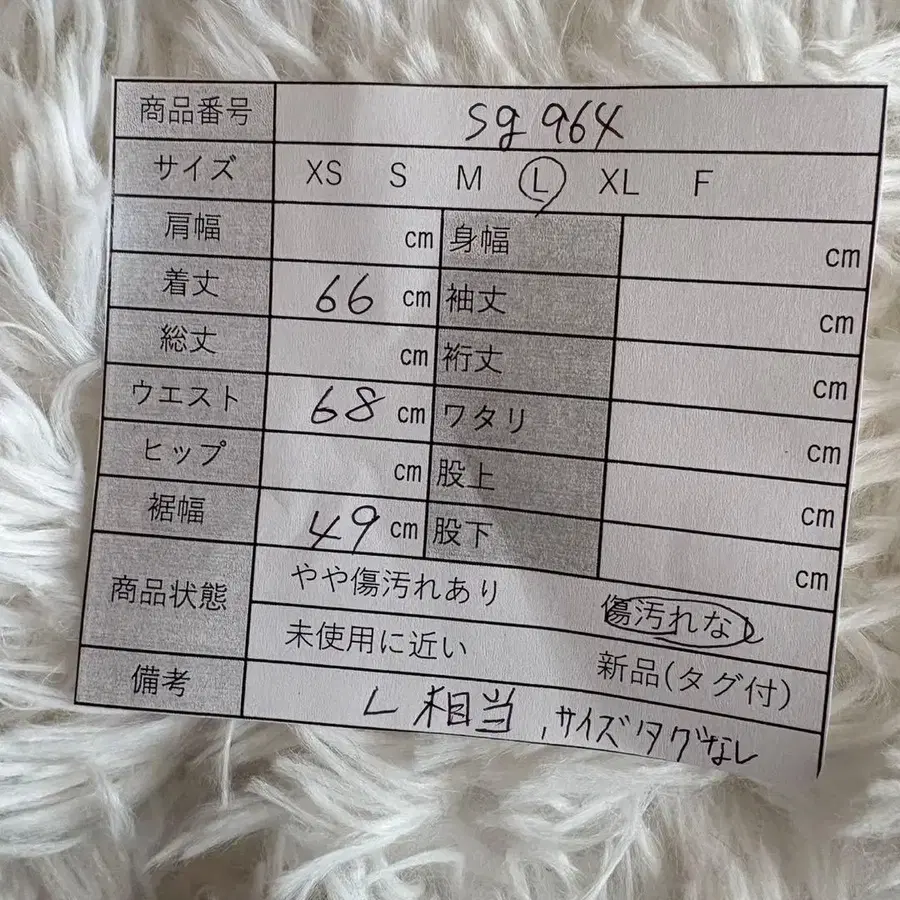 商品番号 sg 964
サイズ XS S M L XL F
肩幅 cm 身幅 cm
着丈 66 cm 袖丈 cm
総丈 cm 裄丈 cm
ウエスト 68 cm ワタリ cm
ヒップ cm 股上 cm
裾幅 49 cm 股下 cm
商品状態 やや傷汚れあり 傷汚れなし
未使用に近い 新品(タグ付)
備考 L 相当、サイズタグなし